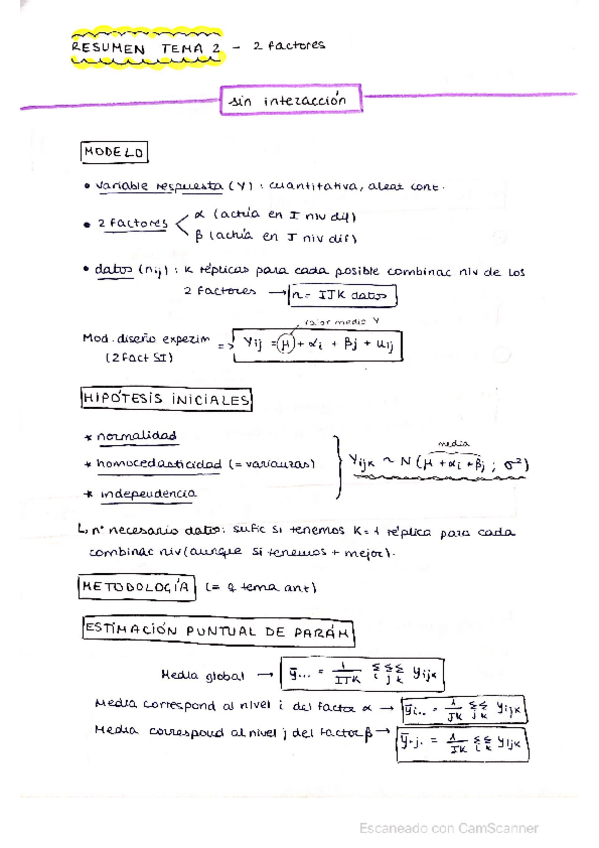 RESUMEN TEMA 2 - 2 factores
sin interacción
MODELO
• variable respuesta (Y) : cuantitativa, aleat cont.
• 2 factores < α (actúa en I niv dif)
β (actúa en J niv dif)
• datos (nij) : K réplicas para cada posible combinac niv de los
2 factores → n = IJK datos
valor medio Y
Mod. diseño experim => Yij = μ + αi + βj + uij
(2 fact SI)
HIPÓTESIS INICIALES
* normalidad
* homocedasticidad (= varianzas)
* independencia
media
Yijk ~ N (μ + αi + βj ; σ²)
↳ nº necesario datos: sufic si tenemos K = 1 réplica para cada
combinac niv (aunque si tenemos + mejor).
METODOLOGÍA (= q tema ant)
ESTIMACIÓN PUNTUAL DE PARÁM
Media global → ȳ... = 1/IJK Σi Σj Σk yijk
Media correspond al nivel i del factor α → ȳi.. = 1/JK Σj Σk yijk
Media correspond al nivel j del factor β → ȳ.j. = 1/IK Σi Σk yijk
Escaneado con CamScanner